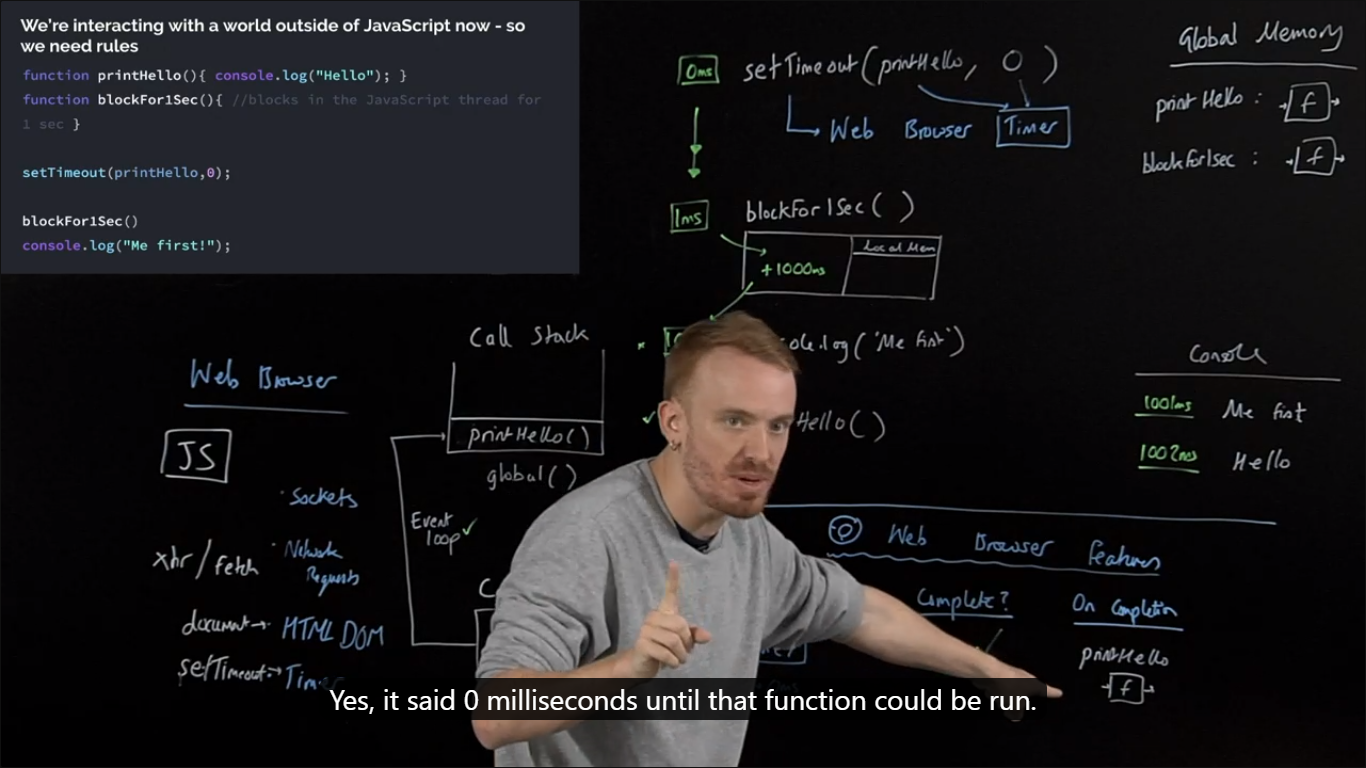 We're interacting with a world outside of JavaScript now - so
we need rules
function printHello(){ console.log("Hello"); }
function blockFor1Sec(){ //blocks in the JavaScript thread for
1 sec }
setTimeout(printHello,0);
blockFor1Sec()
console.log("Me first!");
0ms setTimeout(printHello, 0)
Web Browser Timer
1ms blockFor1Sec( )
+1000ms
Local Mem
('Me first')
Hello( )
Global Memory
printHello : f
blockFor1sec : f
Console
1001ms Me first
1002ms Hello
Call Stack
printHello( )
global( )
Event
loop
Web Browser
JS
Sockets
xhr/fetch Network
Requests
document HTML DOM
setTimeout Timer
Web Browser Features
Complete? On Completion
printHello
f
Yes, it said 0 milliseconds until that function could be run.